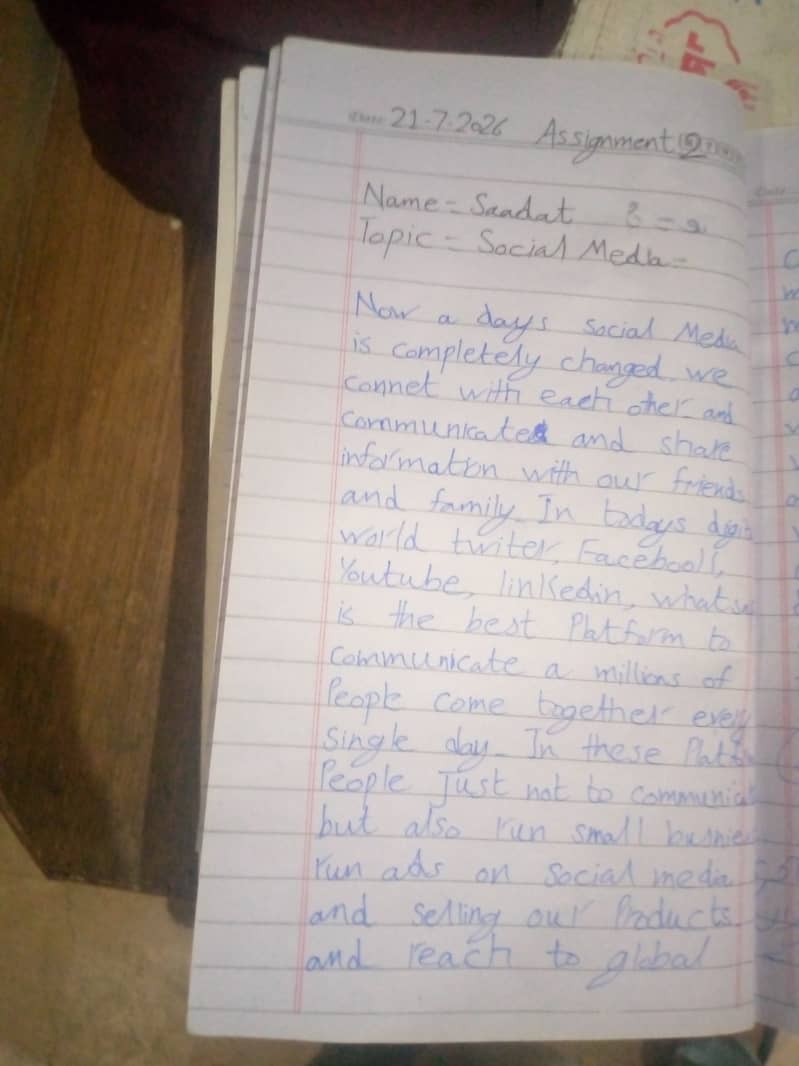 Date: 21-7-2026 Assignment ②
Name = Saadat
Topic = Social Media-
Now a days social Media
is completely changed we
connet with each other and
communicate and share
information with our friends
and family. In todays
world twiter, Facebook,
Youtube, linkedin,
is the best Platform to
communicate a millions of
People come together every
single day. In these
People just not to
but also run small
run ads on social media
and selling our Products
and reach to global